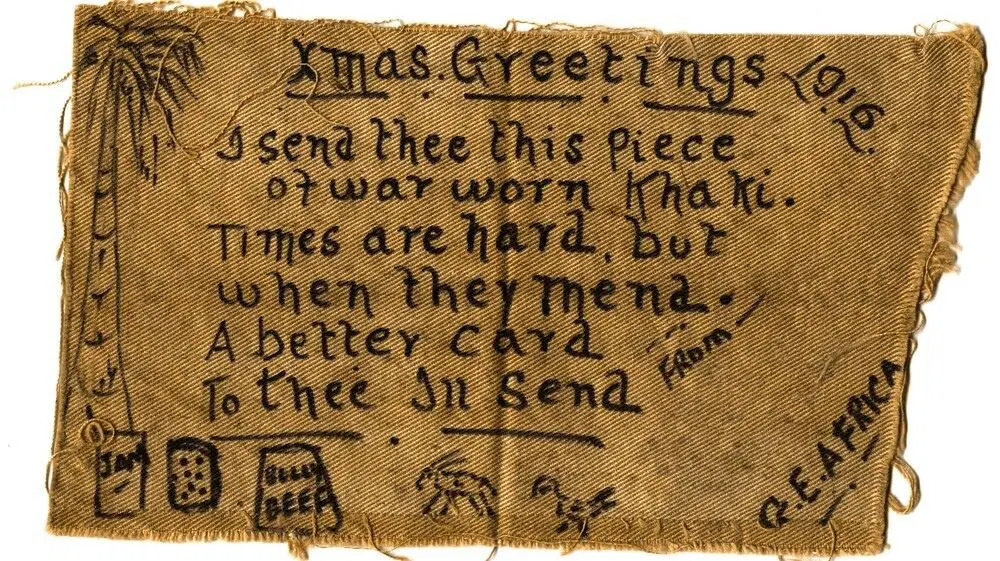 Xmas. Greetings 1916.
I send thee this piece
of war worn Khaki.
Times are hard, but
when they mend.
A better card
To thee Ill send
FROM
G.E. AFRICA
JAM
BULLY
BEEF